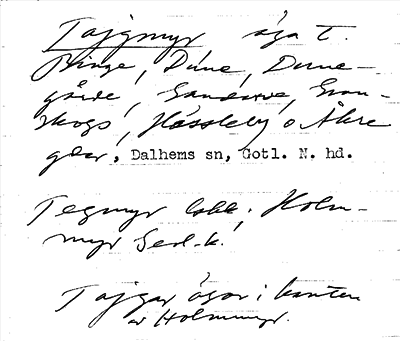 Tajgmyr äga t.
Binge, Dune, Dune-
gårde, Sandarve, Gran-
skogs, Hässleby o Åkre
gdar, Dalhems sn, Gotl. N. hd.
Tegmyr lokk; Holm-
myr Gesl.k.
Tajgar ägor i kanten
av Holmmyr.